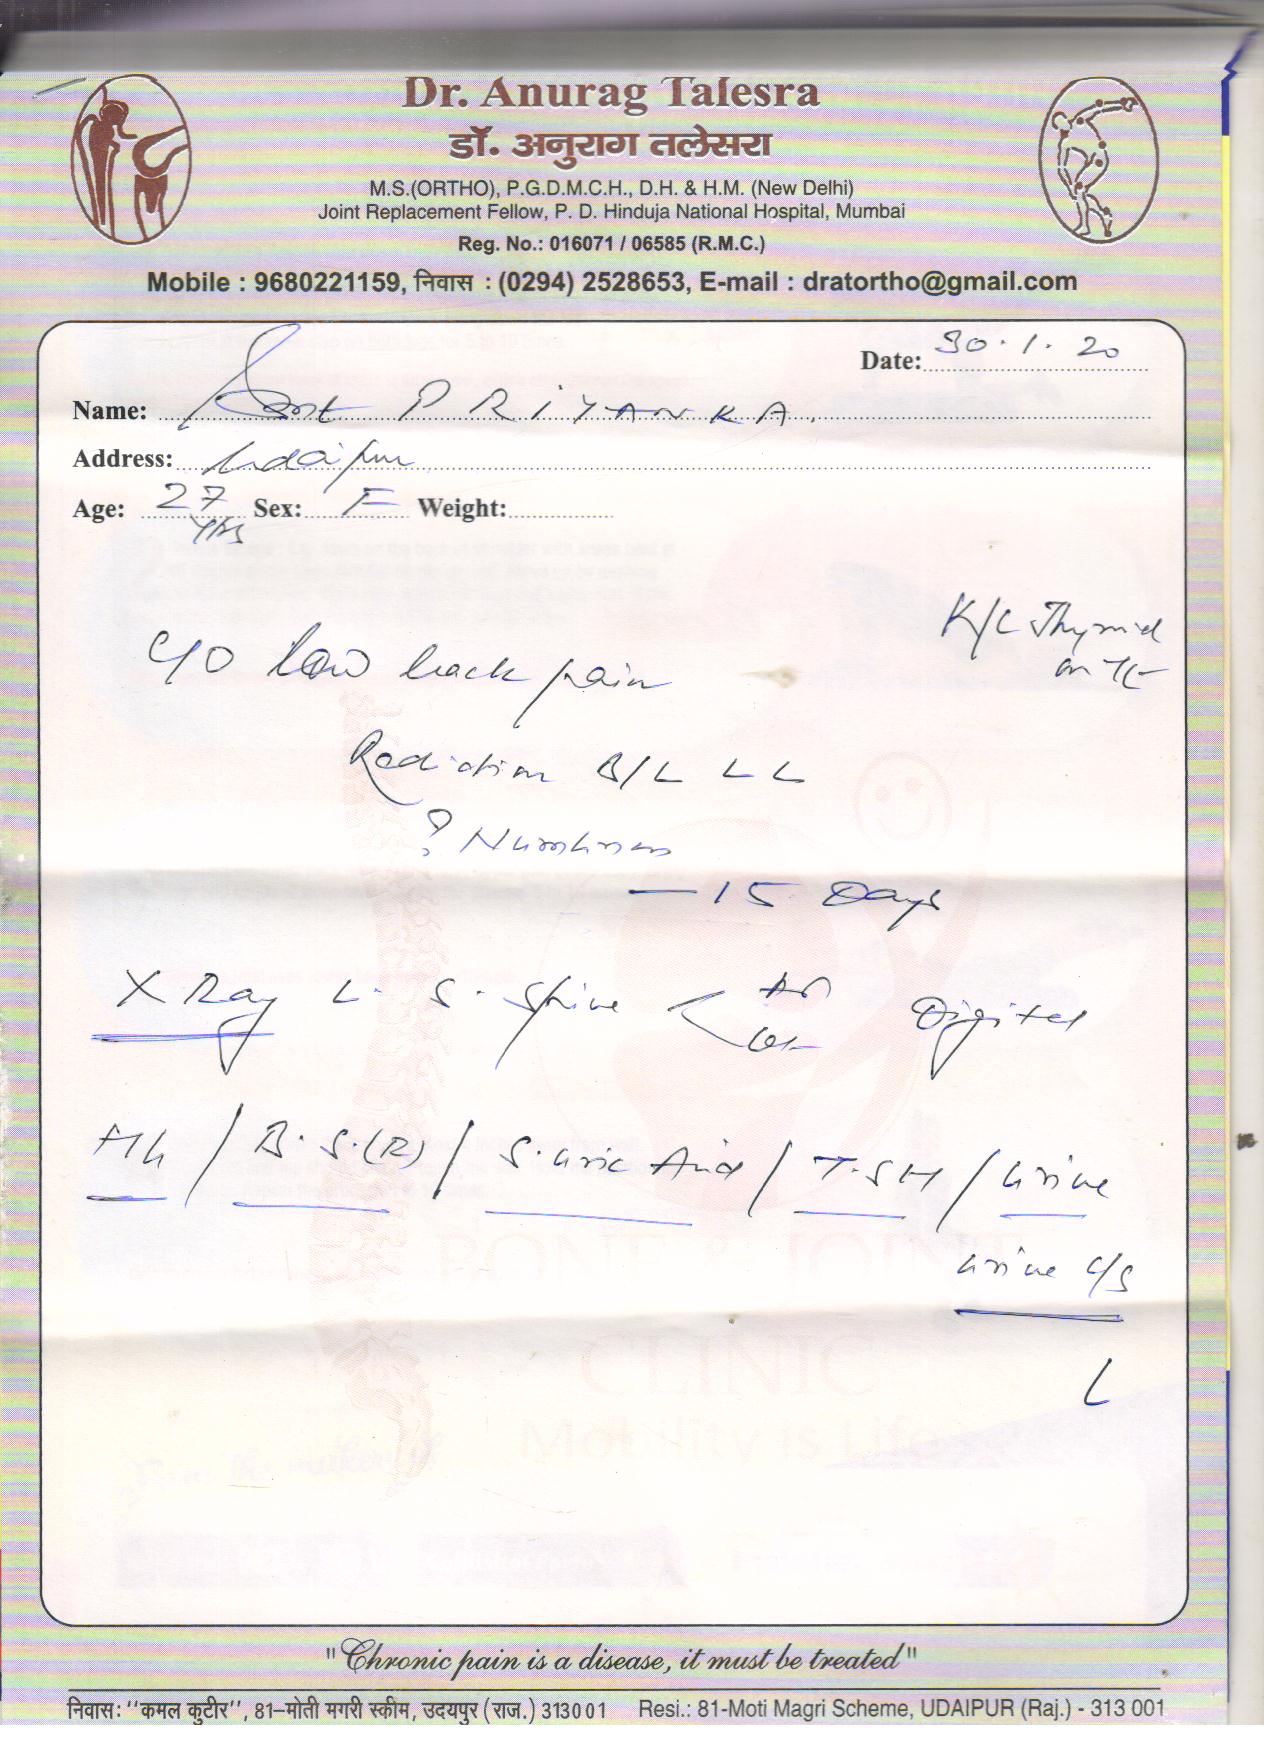 Dr. Anurag Talesra
डॉ. अनुराग तलेसरा
M.S.(ORTHO), P.G.D.M.C.H., D.H. & H.M. (New Delhi)
Joint Replacement Fellow, P. D. Hinduja National Hospital, Mumbai
Reg. No.: 016071 / 06585 (R.M.C.)
Mobile : 9680221159, निवास : (0294) 2528653, E-mail : dratortho@gmail.com
Date: 30.1.20
Name: Smt PRIYANKA
Address: Udaipur
Age: 27 yrs Sex: F Weight:
K/C Thyroid
on
C/O low back pain
Radiation B/L LL
? Numbness
— 15 Days
X Ray L.S. Spine < AP Digital
Lat
Hb / B.S.(R) / S. uric Acid / T.SH / urine
urine C/S
BONE & JOINT
CLINIC
Mobility is Life
"Chronic pain is a disease, it must be treated"
निवास: ''कमल कुटीर'', 81–मोती मगरी स्कीम, उदयपुर (राज.) 313001 Resi.: 81-Moti Magri Scheme, UDAIPUR (Raj.) - 313 001